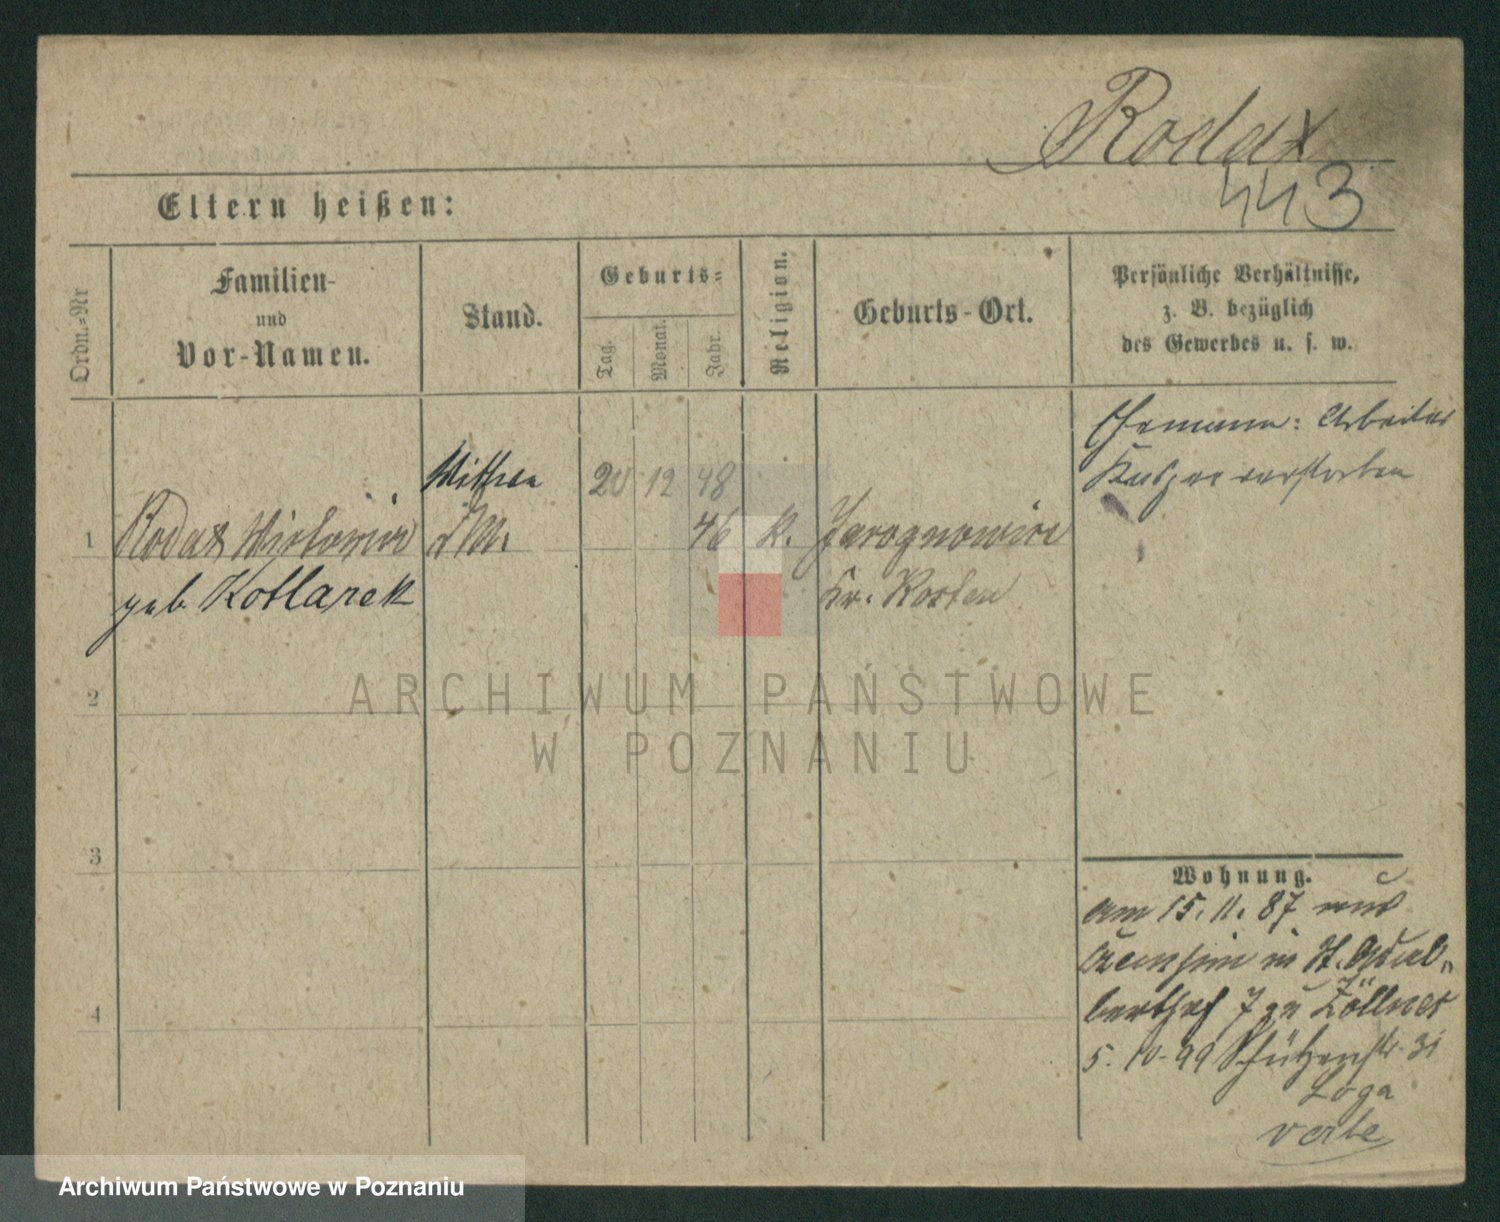 Rodax
443
Eltern heißen:
Ordn.-Nr
Familien-
und
Vor-Namen.
Stand.
Geburts-
Tag.
Monat.
Jahr.
Religion.
Geburts-Ort.
Persönliche Verhältnisse,
z. B. bezüglich
des Gewerbes u. s. w.
Ehemann: Arbeiter
verstorben
20 12 48
1 Rodax 46 k.
geb Kotlarek Kr. Kosten
2
3
4
Wohnung.
am 15. 11. 87 aus
in St. Adal-
berthof 7 zu Zöllner
5. 10. 99 Schützenstr. 31
Loga
ARCHIWUM PAŃSTWOWE
W POZNANIU
Archiwum Państwowe w Poznaniu